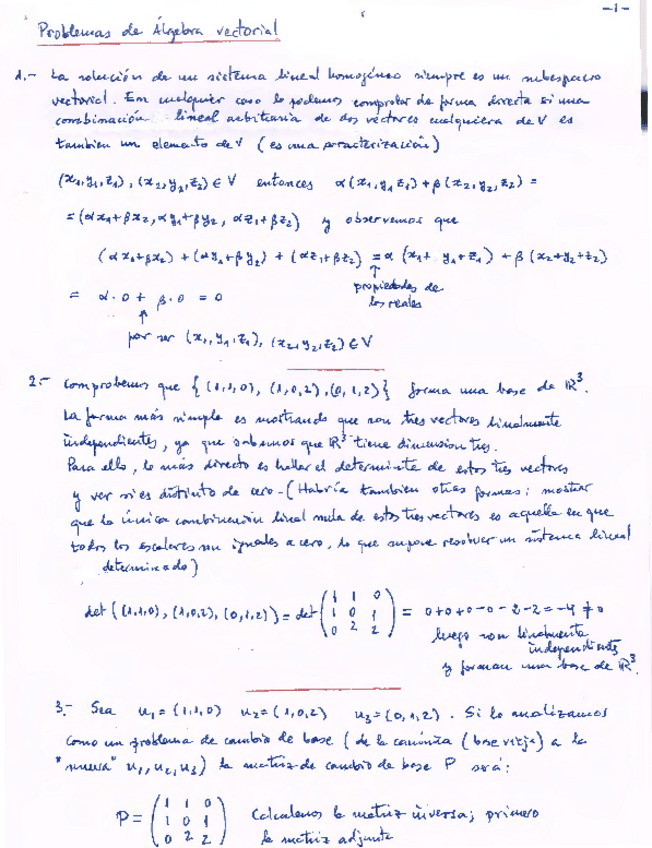 -1-
Problemas de Álgebra vectorial
1.- La solución de un sistema lineal homogéneo siempre es un subespacio
vectorial. En cualquier caso lo podemos comprobar de forma directa si una
combinación lineal arbitraria de dos vectores cualquiera de V es
tambien un elemento de V (es una caracterización)
(x₁,y₁,z₁), (x₂,y₂,z₂) ∈ V entonces α(x₁,y₁,z₁)+β(x₂,y₂,z₂) =
= (αx₁+βx₂, αy₁+βy₂, αz₁+βz₂) y observemos que
(αx₁+βx₂) + (αy₁+βy₂) + (αz₁+βz₂) = α(x₁+y₁+z₁) + β(x₂+y₂+z₂)
↑
propiedades de
los reales
= α·0 + β·0 = 0
↑
por ser (x₁,y₁,z₁), (x₂,y₂,z₂) ∈ V
2.- Comprobemos que {(1,1,0), (1,0,2), (0,1,2)} forma una base de ℝ³.
La forma más simple es mostrando que son tres vectores linealmente
independientes, ya que sabemos que ℝ³ tiene dimension tres.
Para ello, lo más directo es hallar el determinante de estos tres vectores
y ver si es distinto de cero. (Habría tambien otras formas: mostrar
que la única combinación lineal nula de estos tres vectores es aquella en que
todos los escalares son iguales a cero, lo que supone resolver un sistema lineal
determinado)
det((1,1,0), (1,0,2), (0,1,2)) = det
1 1 0
1 0 1
0 2 2
= 0+0+0-0-2-2 = -4 ≠ 0
luego son linealmente
independientes
y forman una base de ℝ³.
3.- Sea u₁=(1,1,0) u₂=(1,0,2) u₃=(0,1,2). Si lo analizamos
como un problema de cambio de base (de la canónica (base vieja) a la
"nueva" u₁,u₂,u₃) la matriz de cambio de base P será:
P =
1 1 0
1 0 1
0 2 2
Calculemos la matriz inversa; primero
la matriz adjunta